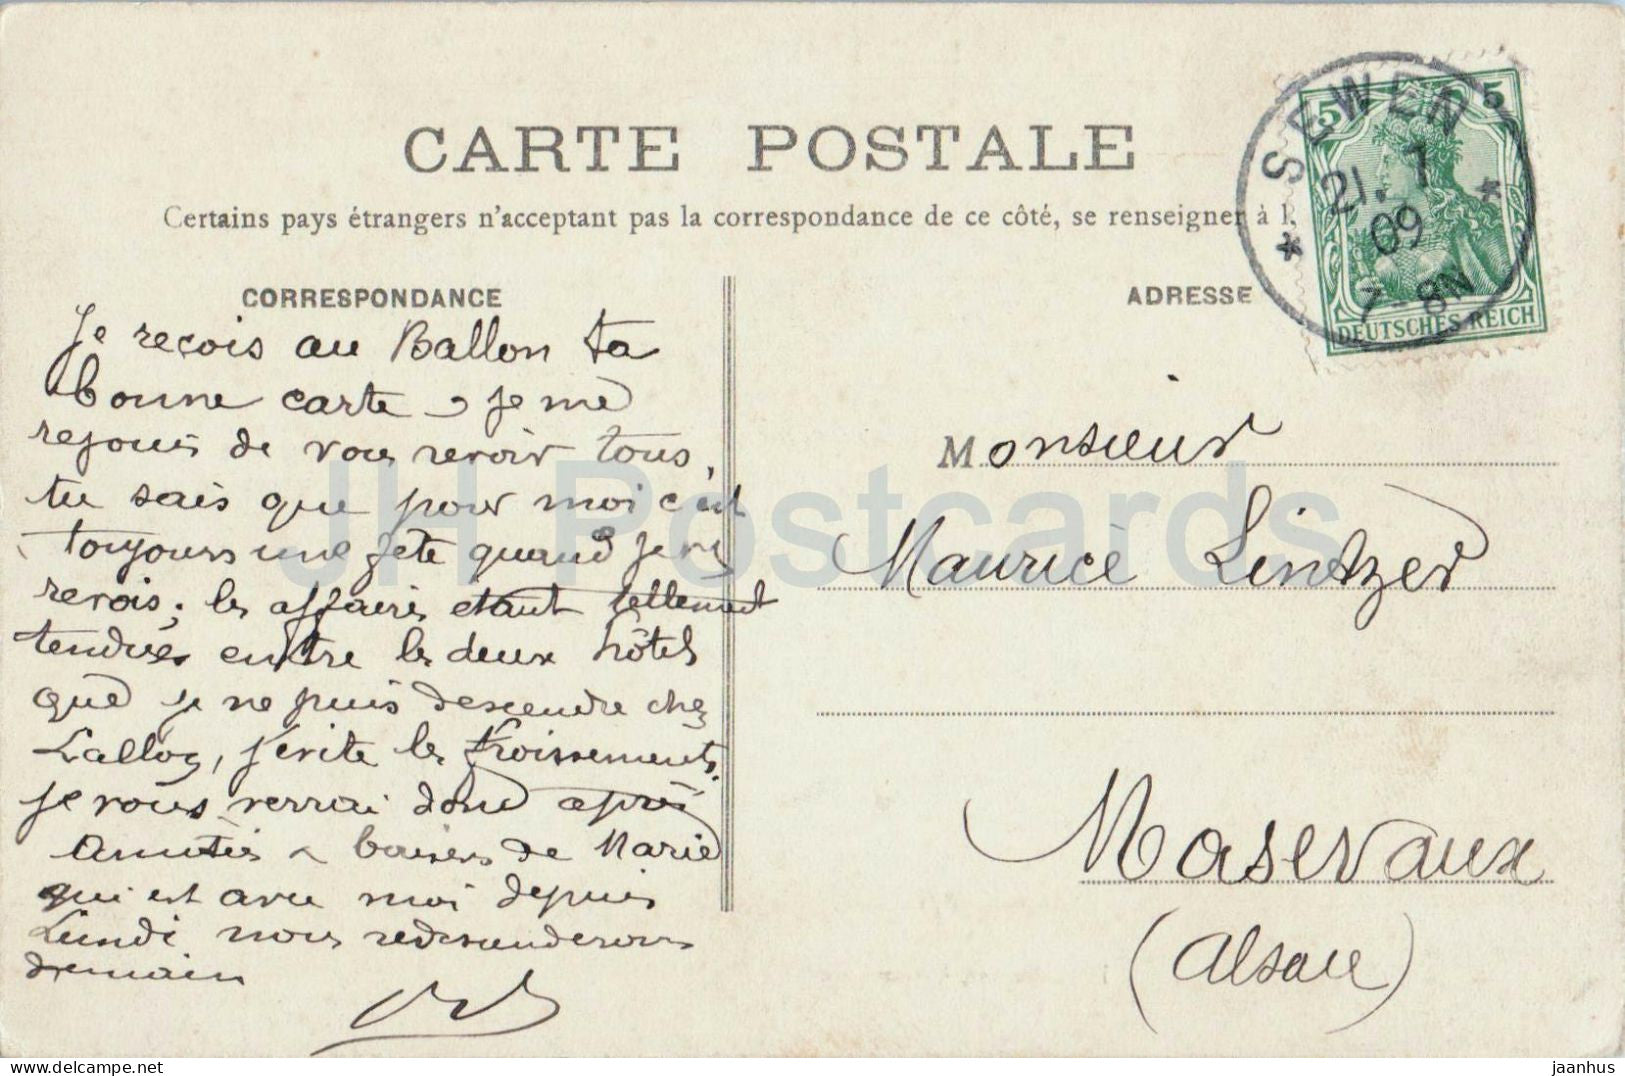 CARTE POSTALE
Certains pays étrangers n'acceptant pas la correspondance de ce côté, se renseigner à l.
SEWEN
21. 7
09
7 - 8N
5 5
DEUTSCHES REICH
CORRESPONDANCE
Je reçois au Ballon ta
bonne carte, je me
rejouis de vous revoir tous,
tu sais que pour moi c'est
toujours une fête quand je vs
revois; les affaires etant tellement
tendues entre les deux hôtels
que je ne puis descendre chez
Lalloz, j'evite les froissements.
je vous verrai donc après
Amitiés & baisers de Marie
qui est avec moi depuis
Lundi nous redescenderons
demain
ADRESSE
Monsieur
Maurice Lintzer
Masevaux
(Alsace)
JH Postcards
www.delcampe.net
jaanhus